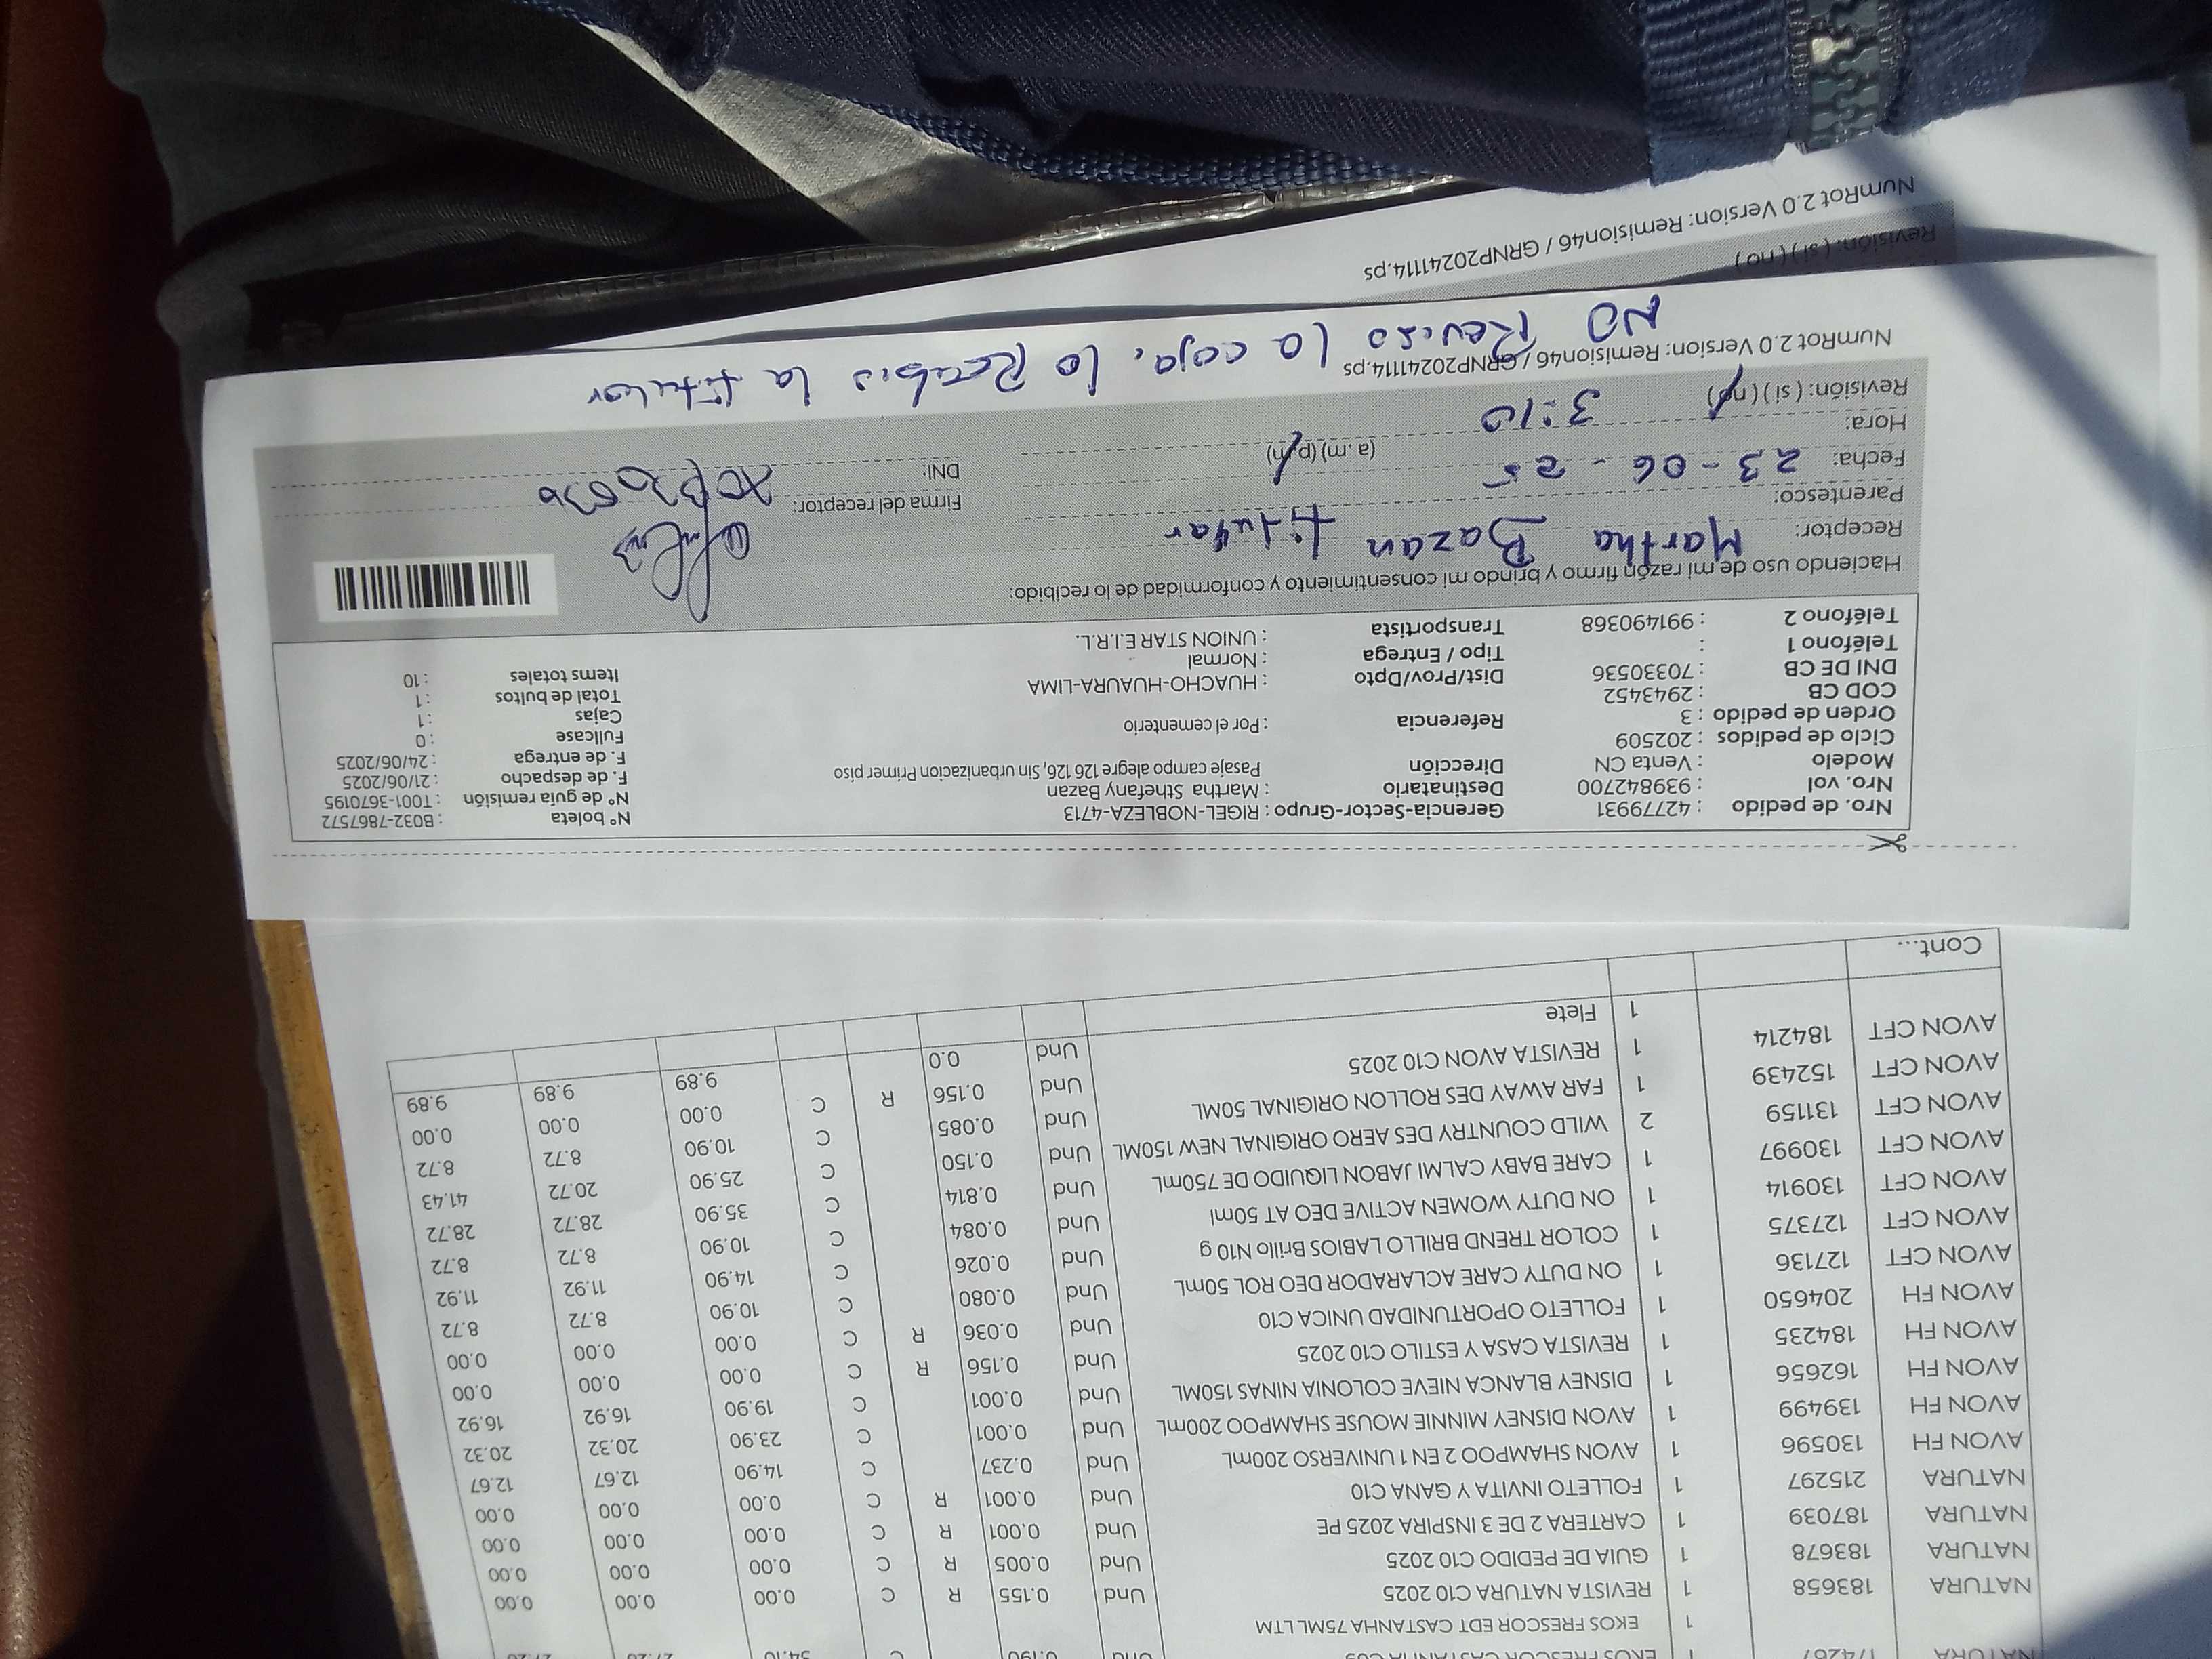 NATURA 174267 1 EKOS FRESCOR CASTANHA Und 0.190 C 34.10
1 EKOS FRESCOR EDT CASTANHA 75ML LTM
NATURA 183658 1 REVISTA NATURA C10 2025 Und 0.155 R C 0.00 0.00 0.00
NATURA 183678 1 GUIA DE PEDIDO C10 2025 Und 0.005 R C 0.00 0.00 0.00
NATURA 187039 1 CARTERA 2 DE 3 INSPIRA 2025 PE Und 0.001 R C 0.00 0.00 0.00
NATURA 215297 1 FOLLETO INVITA Y GANA C10 Und 0.001 R C 0.00 0.00 0.00
AVON FH 130596 1 AVON SHAMPOO 2 EN 1 UNIVERSO 200mL Und 0.237 C 14.90 12.67 12.67
AVON FH 139499 1 AVON DISNEY MINNIE MOUSE SHAMPOO 200mL Und 0.001 C 23.90 20.32 20.32
AVON FH 162656 1 DISNEY BLANCA NIEVE COLONIA NINAS 150ML Und 0.001 C 19.90 16.92 16.92
AVON FH 184235 1 REVISTA CASA Y ESTILO C10 2025 Und 0.156 R C 0.00 0.00 0.00
AVON FH 204650 1 FOLLETO OPORTUNIDAD UNICA C10 Und 0.036 R C 0.00 0.00 0.00
AVON CFT 127136 1 ON DUTY CARE ACLARADOR DEO ROL 50mL Und 0.080 C 10.90 8.72 8.72
AVON CFT 127375 1 COLOR TREND BRILLO LABIOS Brillo N10 g Und 0.026 C 14.90 11.92 11.92
AVON CFT 130914 1 ON DUTY WOMEN ACTIVE DEO AT 50ml Und 0.084 C 10.90 8.72 8.72
AVON CFT 130997 1 CARE BABY CALMI JABON LIQUIDO DE 750mL Und 0.814 C 35.90 28.72 28.72
AVON CFT 131159 2 WILD COUNTRY DES AERO ORIGINAL NEW 150ML Und 0.150 C 25.90 20.72 41.43
AVON CFT 152439 1 FAR AWAY DES ROLLON ORIGINAL 50ML Und 0.085 C 10.90 8.72 8.72
AVON CFT 184214 1 REVISTA AVON C10 2025 Und 0.156 R C 0.00 0.00 0.00
1 Flete Und 0.0 9.89 9.89 9.89
Cont...
Nro. de pedido : 42779931 Gerencia-Sector-Grupo : RIGEL-NOBLEZA-4713 N° boleta : B032-7867572
Nro. vol : 9398427​00 Destinatario : Martha Sthefany Bazan N° de guía remisión : T001-3670195
Modelo : Venta CN Dirección Pasaje campo alegre 126 126, Sin urbanizacion Primer piso F. de despacho : 21/06/2025
Ciclo de pedidos : 202509 F. de entrega : 24/06/2025
Orden de pedido : 3 Referencia : Por el cementerio Fullcase : 0
COD CB : 2943452 Cajas : 1
DNI DE CB : 70330536 Dist/Prov/Dpto : HUACHO-HUAURA-LIMA Total de bultos : 1
Teléfono 1 : Tipo / Entrega : Normal Items totales : 10
Teléfono 2 : 991490368 Transportista : UNION STAR E.I.R.L.
Haciendo uso de mi razón firmo y brindo mi consentimiento y conformidad de lo recibido:
Receptor: Martha Bazan titular
Parentesco: Firma del receptor:
Fecha: 23-06-25 DNI:
Hora: 3:10 (a. m) (p. m)
Revisión: ( si ) ( no )
NumRot 2.0 Version: Remision46 / GRNP20241114.ps
NO Reviso la caja, lo Recibio la titular
Revisión: ( si ) ( no )
NumRot 2.0 Version: Remision46 / GRNP20241114.ps